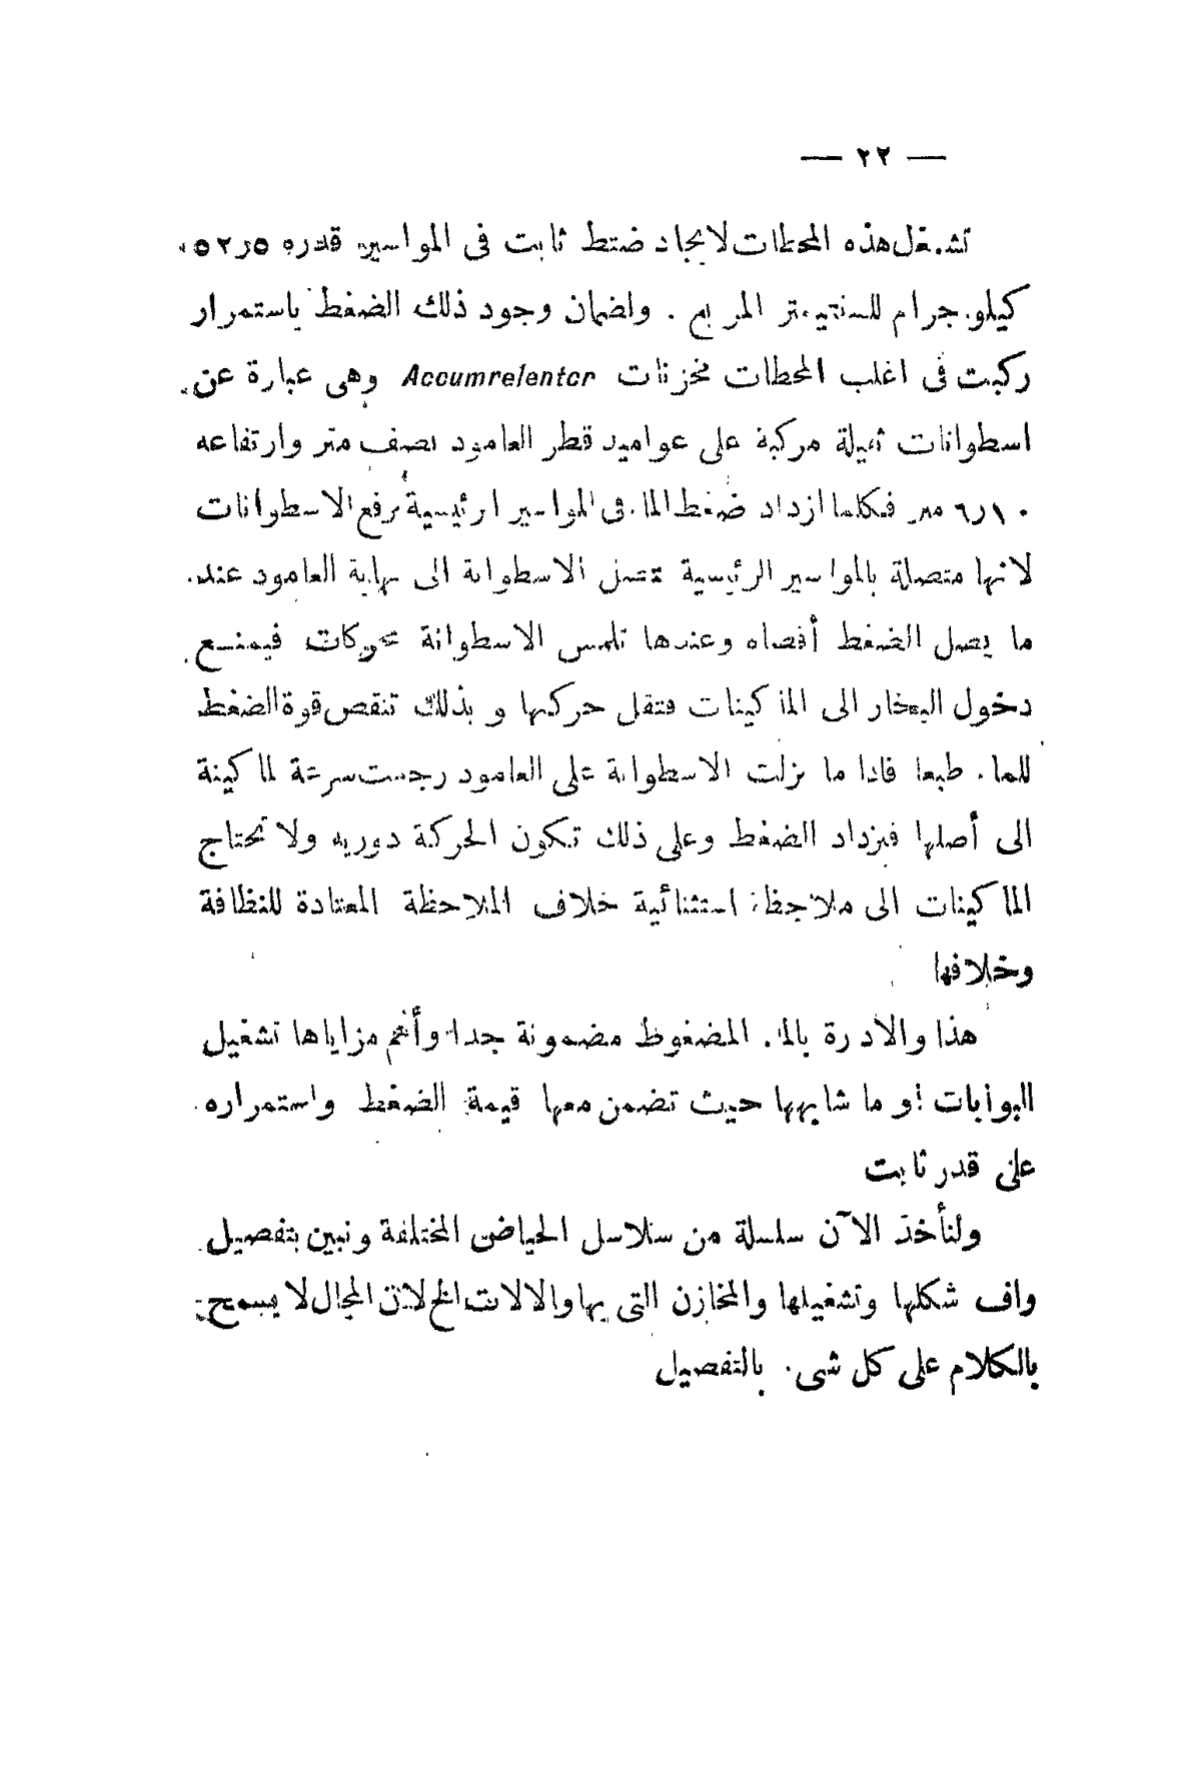 — ٢٢ —
تشتغل هذه المحطات لايجاد ضتط ثابت فى المواسير قدره ٥ر٥٢
كيلو جرام للسنتيمتر المربع . ولضمان وجود ذلك الضغط باستمرار
ركبت فى اغلب المحطات مخزنات Accumrelentcr وهى عبارة عن
اسطوانات ثقيلة مركبة على عواميد قطر العامود نصف متر وارتفاعه
٦٫١٠ متر فكلما ازداد ضغط الماء فى المواسير الرئيسية ترفع الاسطوانات
لانها متصلة بالمواسير الرئيسية فتصل الاسطوانة الى نهاية العامود عند
ما يصل الضغط أقصاه وعندها تلمس الاسطوانة محركات فيمنع
دخول البخار الى الماكينات فتقل حركتها و بذلك تنقص قوة الضغط
للماء طبعا فاذا ما نزلت الاسطوانة على العامود رجعت سرعة الماكينة
الى أصلها فيزداد الضغط وعلى ذلك تكون الحركة دوريه ولا تحتاج
الماكينات الى ملاحظة استثنائية خلاف الملاحظة المعتادة للنظافة
وخلافها
هذا والادرة بالماء المضغوط مضمونة جدا وأهم مزاياها تشغيل
البوابات او ما شابهها حيث تضمن معها قيمة الضغط واستمراره
على قدر ثابت
ولنأخذ الآن سلسلة من سلاسل الحياض المختلفة ونبين بتفصيل
واف شكلها وتشغيلها والمخازن التى بها والالات الخ لان المجال لا يسمح
بالكلام على كل شىء بالتفصيل